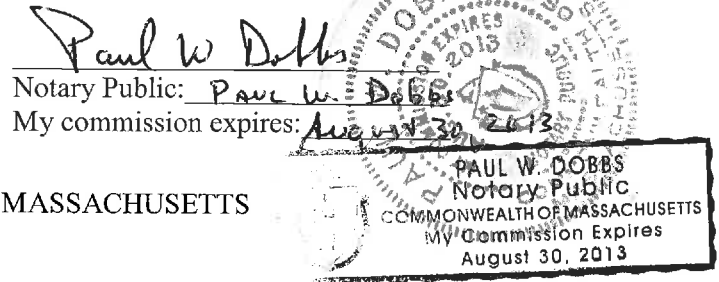 Paul W Dobbs
Notary Public: Paul W. Dobbs
My commission expires: August 30, 2013
MASSACHUSETTS
PAUL W. DOBBS
Notary Public
COMMONWEALTH OF MASSACHUSETTS
My Commission Expires
August 30, 2013